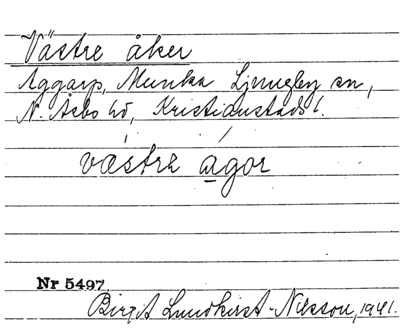 Västre åker
Aggarp, Munka Ljungby sn,
N. Åsbo hd, Kristianstads l.
væstrε ągor
Nr 5497
Birgit Lundkvist-Nilsson, 1941.